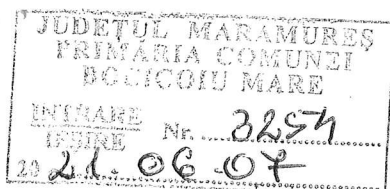 JUDEŢUL MARAMUREŞ
PRIMĂRIA COMUNEI
BOCICOIU MARE
INTRARE
IEŞIRE Nr. 3254
20 21. 06 07